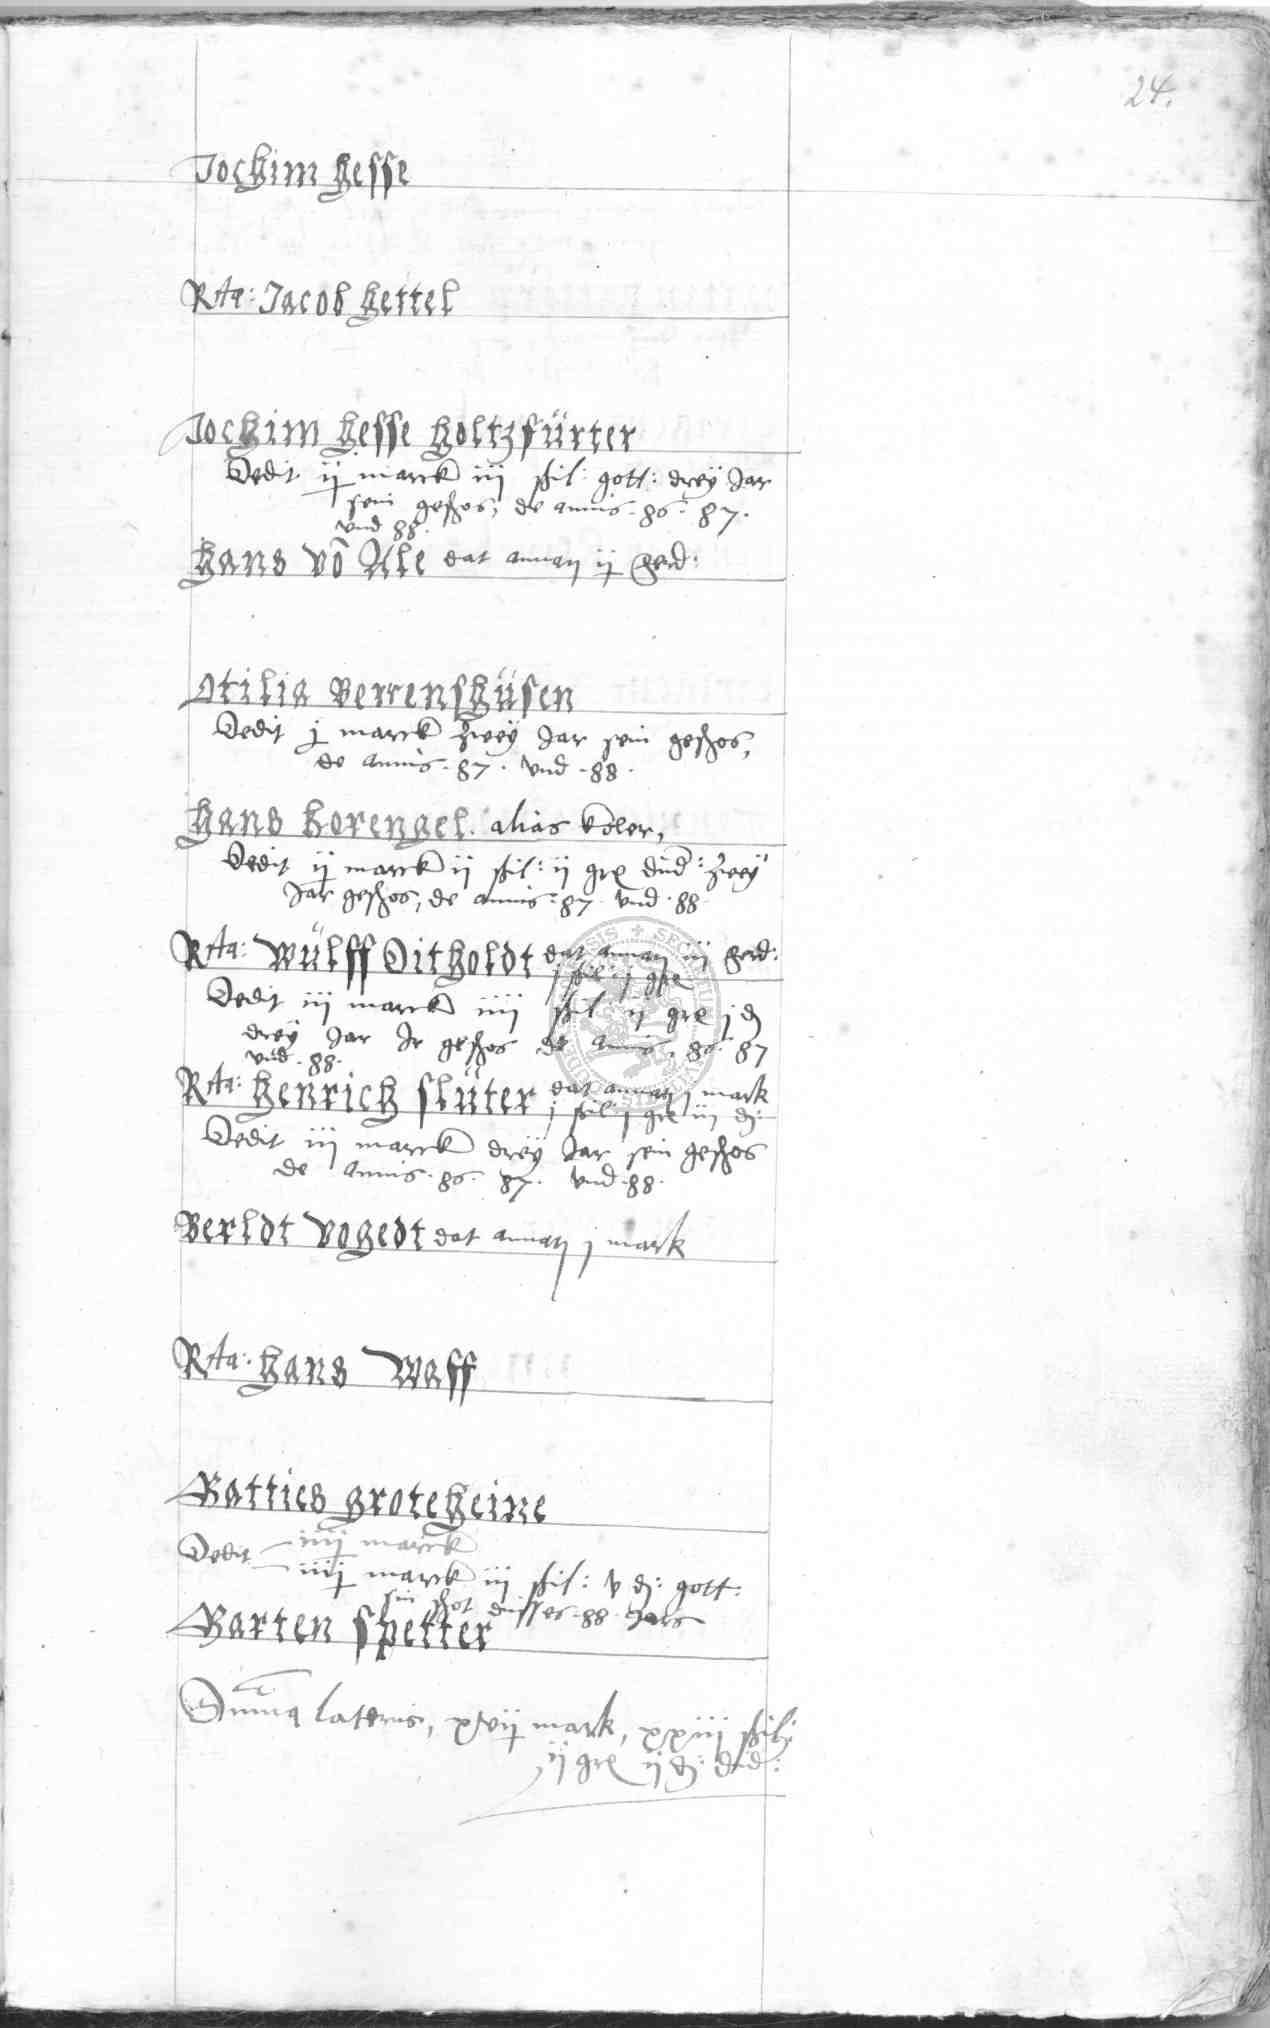 24.
Jochim Hesse
Rta: Jacob Hettel
Jochim Hesse Holtzfürter
Dedit ij marck iij ßil: gott: drey Jar
sein geschos, de annis. 86. 87.
vnd 88.
Hans võ Ale dat ij
Otilia Berrenshüsen
Dedit j marck zwey Jar sein geschos,
de annis. 87. vnd. 88.
Hans Korengel. alias Koler,
Dedit ij marck ij ßil: ij gre dud: zwey
Jar geschos, de annis. 87. vnd. 88.
Rta: Wülff Ditholdt dat iij
j ßil: j gre
Dedit iij marck iiij ßil ij gre j d
drey Jar Ir geschos de annis. 86. 87
vnd. 88.
Rta: Henrich Slüter dat j mark
j ßil j gre iij d:
Dedit iij marck drey Jar sein geschos
de annis. 86. 87. vnd. 88.
Berldt Vogedt dat j mark
Rta: Hans Waff
Matties Groteheine
Dedit iiij marck
iiij marck iij ßil: v d: gott:
sin schot disses. 88. Jars
Marten Spetter
Summa lateris, xvij mark, xxiij ßil:
ij gre ij d: dud: